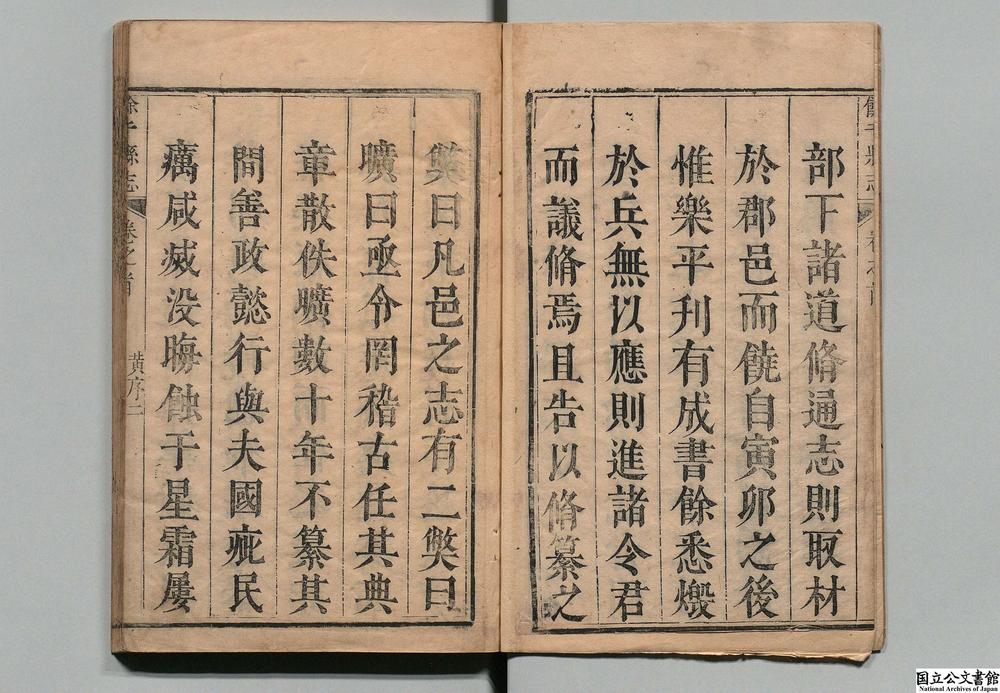 部下諸道脩通志則取材
於郡邑而饒自寅卯之後
惟樂平刋有成書餘悉燬
於兵無以應則進諸令君
而議脩焉且告以脩纂之
獘曰凡邑之志有二獘曰
曠曰亟令罔稽古任其典
章散佚曠數十年不纂其
間善政懿行與夫國疵民
癘咸㓕没晦蝕于星霜屢
餘干縣志
卷之首
黄序二
国立公文書館
National Archives of Japan